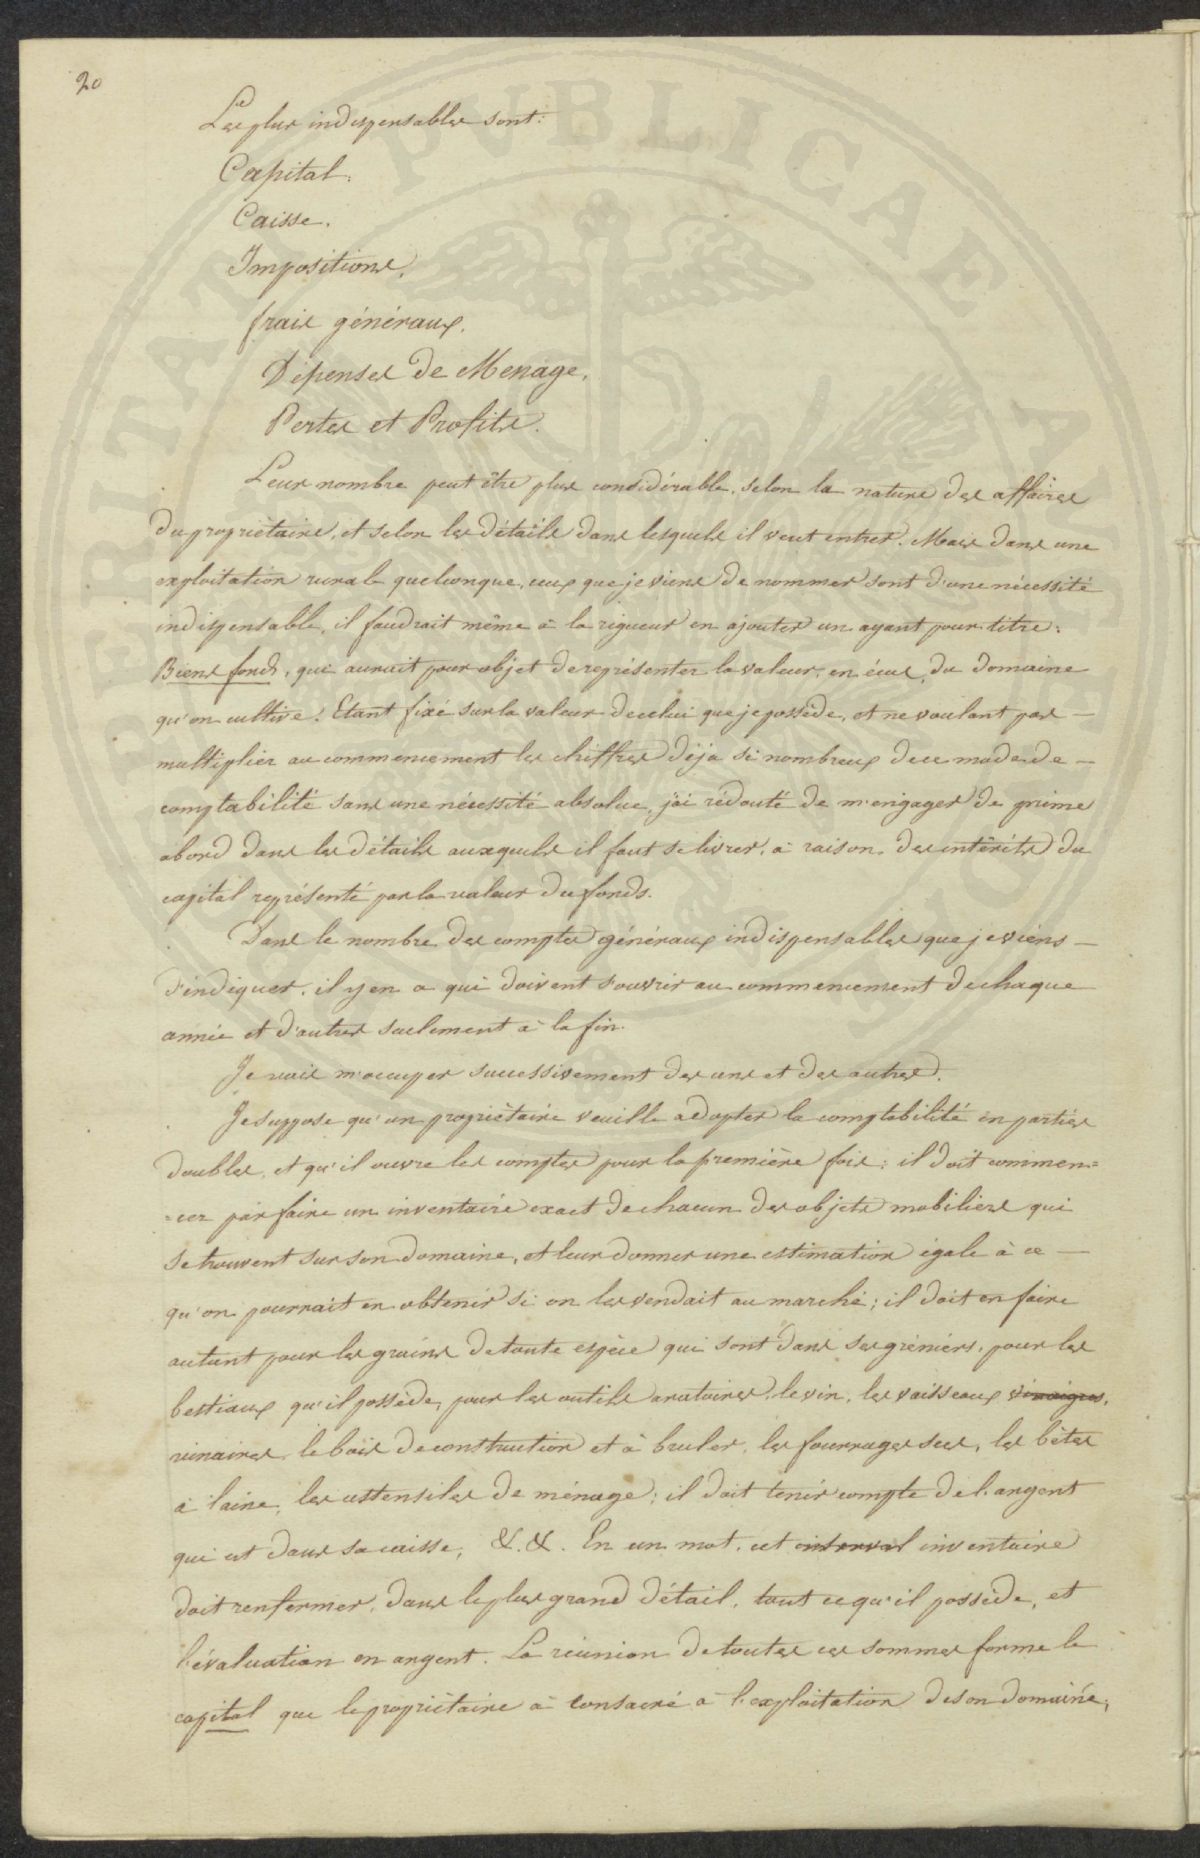 20
Les plus indispensables sont:
Capital.
Caisse.
Impositions.
frais généraux.
Dépenses de Menage.
Pertes et Profits.
Leur nombre peut être plus considérable, selon la nature des affaires
du propriétaire, et selon les détails dans lesquels il veut entrer. Mais dans une
exploitation rurale quelconque, ceux que je viens de nommer sont d'une nécessité
indispensable, il faudrait même à la rigueur en ajouter un ayant pour titre:
Biens fonds, qui aurait pour objet de représenter la valeur, en écus, du domaine
qu'on cultive. Etant fixé sur la valeur de celui que je possède, et ne voulant pas —
multiplier au commencement les chiffres déja si nombreux de ce mode de —
comptabilité sans une nécessité absolue, j'ai rédouté de m'engager de prime
abord dans les détails auxquels il faut se livrer, à raison des intérêts du
capital représenté par la valeur du fonds.
Dans le nombre des comptes généraux indispensables que je viens —
d'indiquer, il y en a qui doivent s'ouvrir au commencement de chaque
année et d'autres seulement à la fin.
Je vais m'occuper successivement des uns et des autres.
Je suppose qu'un propriétaire veuille adopter la comptabilité en parties
doubles, et qu'il ouvre les comptes pour la première fois: il doit commen=
=cer par faire un inventaire exact de chacun des objets mobiliers qui
se trouvent sur son domaine, et leur donner une estimation égale à ce —
qu'on pourrait en obtenir si on les vendait au marché; il doit en faire
autant pour les grains de toute espèce qui sont dans ses gréniers, pour les
bestiaux qu'il possède, pour les outils aratoires, le vin, les vaisseaux vinaigres,
vinaires, le bois de construction et à bruler, les fourrages secs, les bêtes
à laine, les ustensiles de ménage; il doit tenir compte de l'argent
qui est dans sa caisse, &.&. En un mot, cet interval inventaire
doit renfermer, dans le plus grand détail, tout ce qu'il possède, et
l'évaluation en argent. La réunion de toutes ces sommes forme le
capital que le propriétaire à consacré à l'exploitation de son domaine,
PVBLICAE